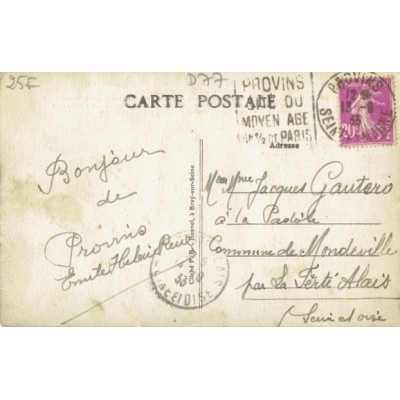 25F
D77
CARTE POSTALE
PROVINS
VILLE DU
MOYEN AGE
DE PARIS
PROVINS
12
13 - 8
35
SEINE ET MARNE
20c
Adresse
Bonjour
de
Provins
Emile Helene René
Cliché P. B. à Bray-sur-Seine
SEINE ET OISE
Mme Jacques Gautero
à la Padole
Commune de Mondeville
par La Ferté Alais
(Seine et oise